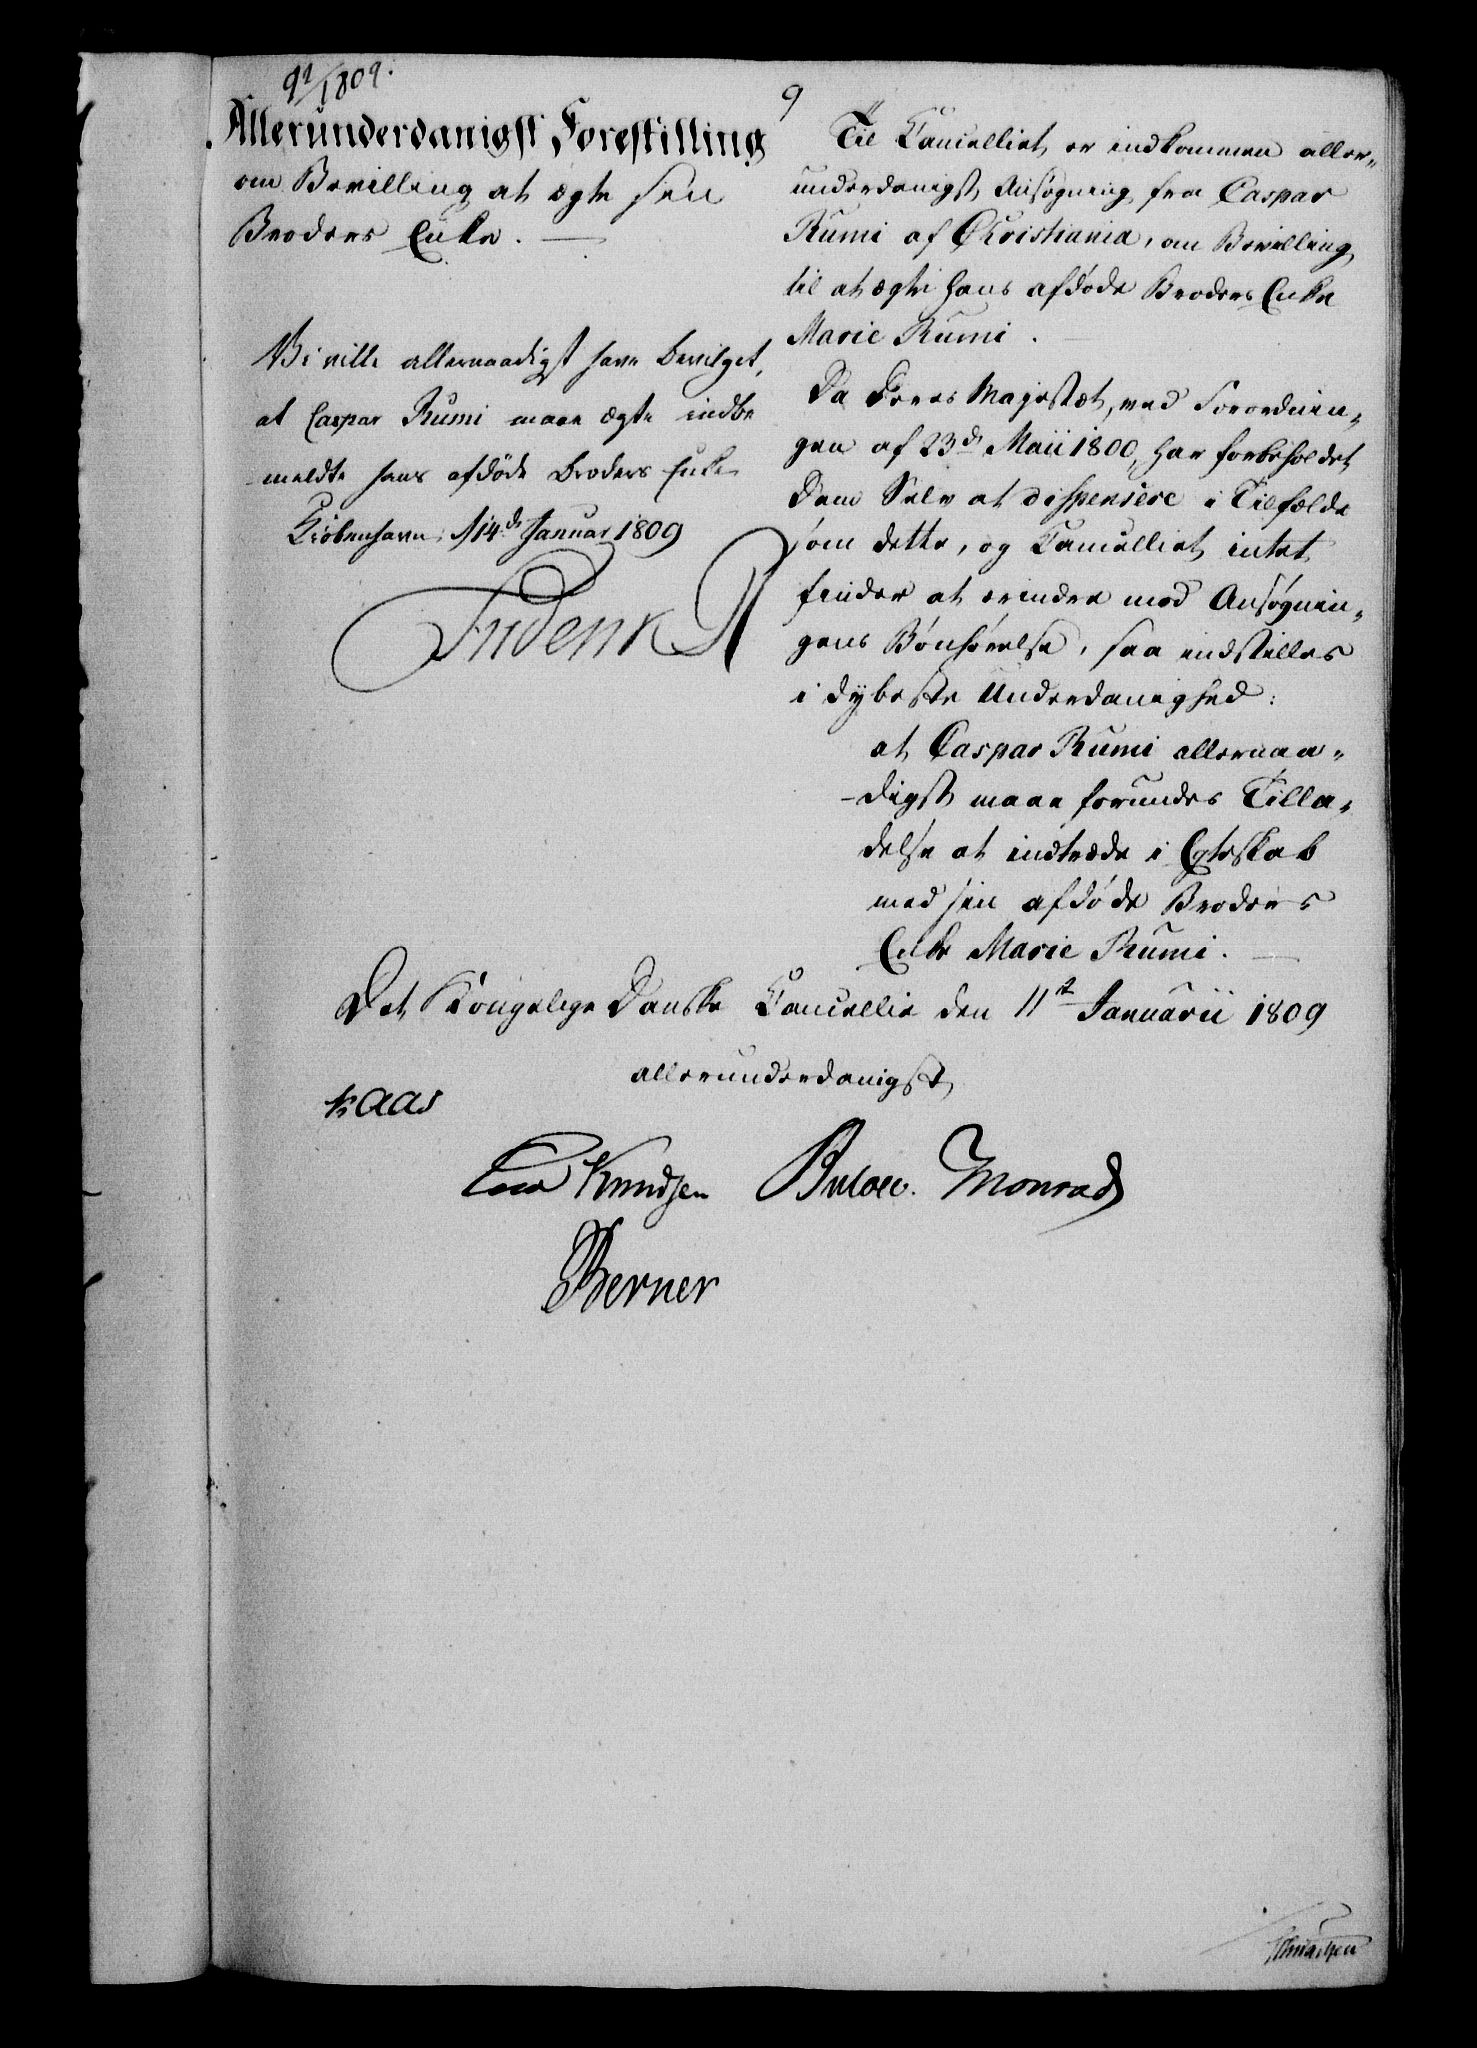 91/1809.
Allerunderdanigst Forestilling
om Bevilling at ægte sin
Broders Enke.
Vi ville allernaadigst have bevilget,
at Caspar Rumi maae ægte indbe
meldte hans afdøde Broders Enke
Kiøbenhavn d 14de Januar 1809
Friderik R
9
Til Cancelliet er indkommen aller-
underdanigst Ansøgning fra Caspar
Rumi af Christiania, om Bevilling
til at ægte hans afdøde Broders Enke
Marie Rumi.
Da Deres Majestæt, ved Forordnin-
gen af 23de Maii 1800, har forbeholdet
Dem Selv at dispensere i Tilfælde
som dette, og Cancelliet intet
finder at erindre mod Ansøgnin-
gens Bønhørelse, saa indstilles
i dybeste Underdanighed:
at Caspar Rumi allernaa-
digst maae forundes Tilla-
delse at indtræde i Egteskab
med sin afdøde Broders
Enke Marie Rumi.
Det Kongelige Danske Cancellie den 11te Januarii 1809
allerunderdanigst
Kaas
Knudsen Bülow. Monrad
Berner